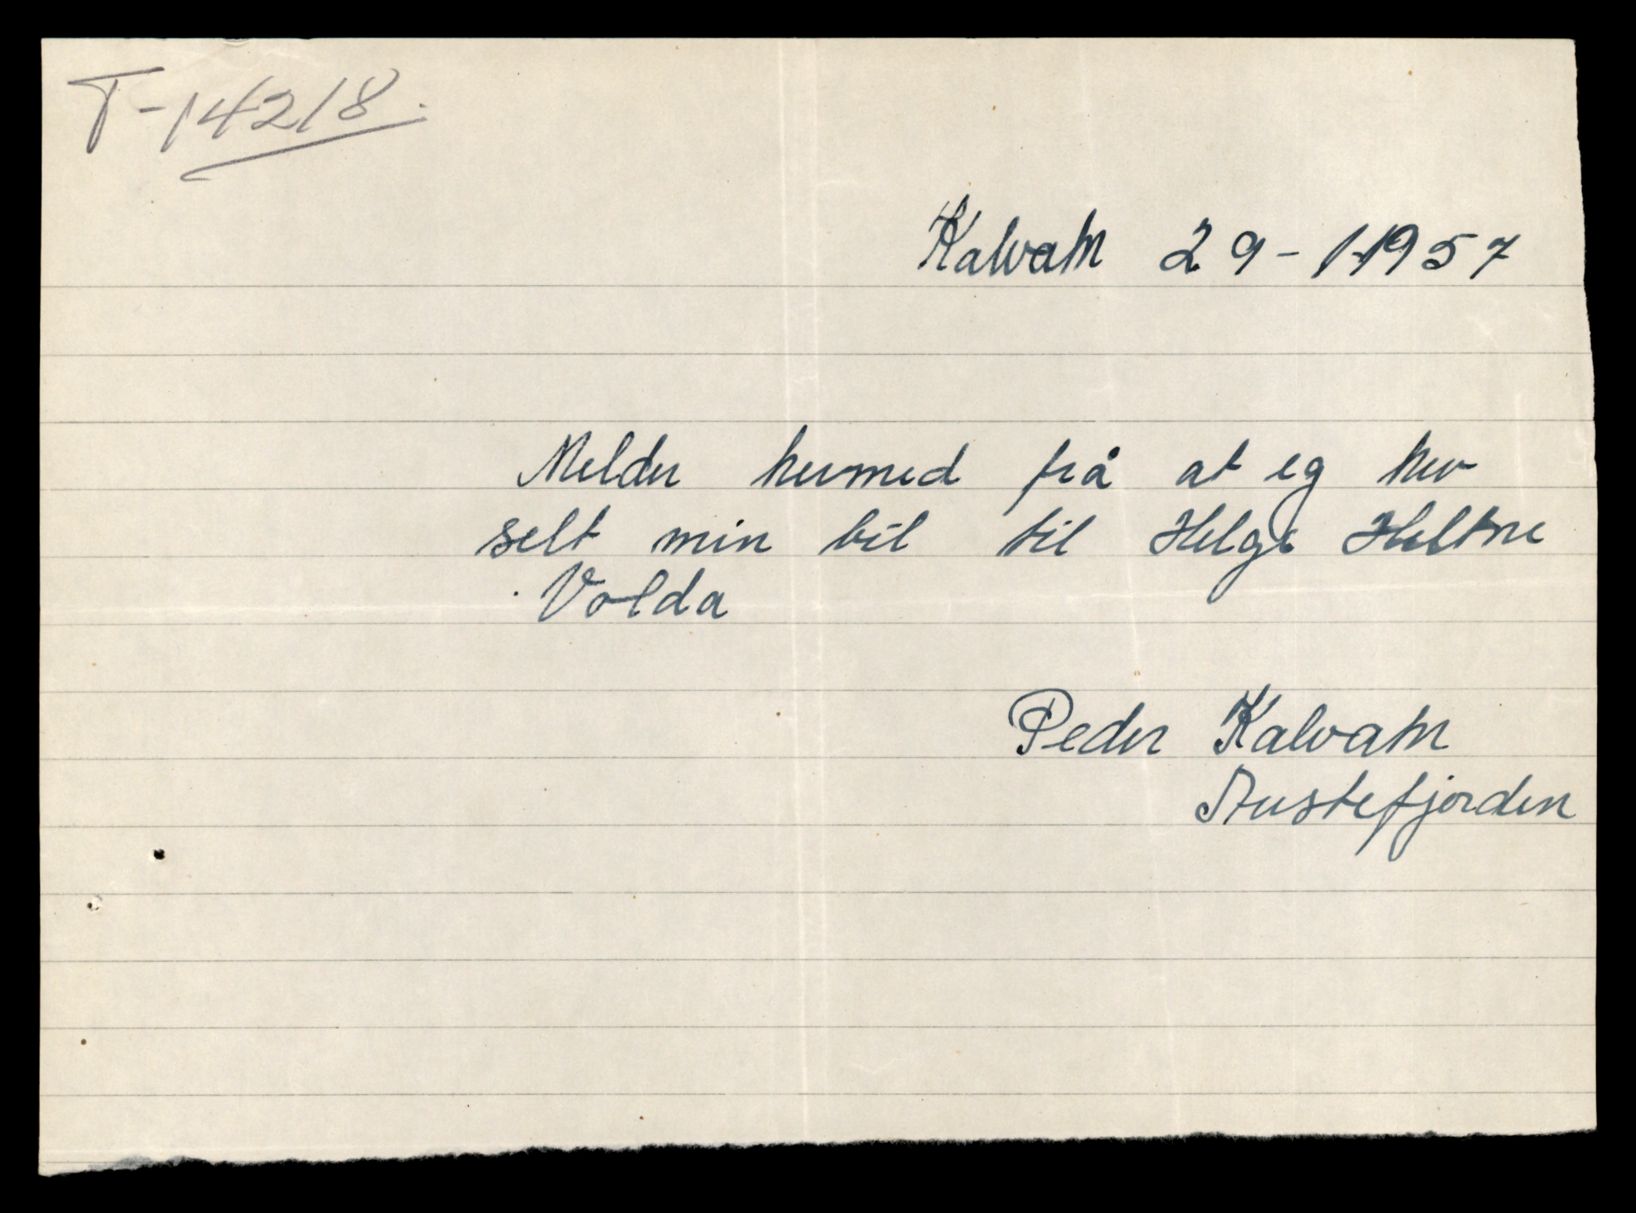 T-14218.
Kalvatn 29-1-1957
Melder hermed frå at eg her
selt min bil til Helge Heltne
Volda
Peder Kalvatn
Austefjorden